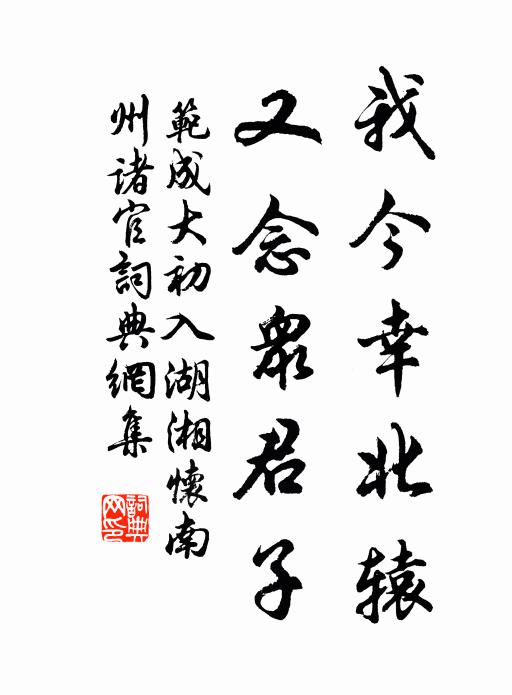 我今幸北辕
又念眾君子
範成大初入湖湘懷南
州诸官詞典網集
詞典
网印